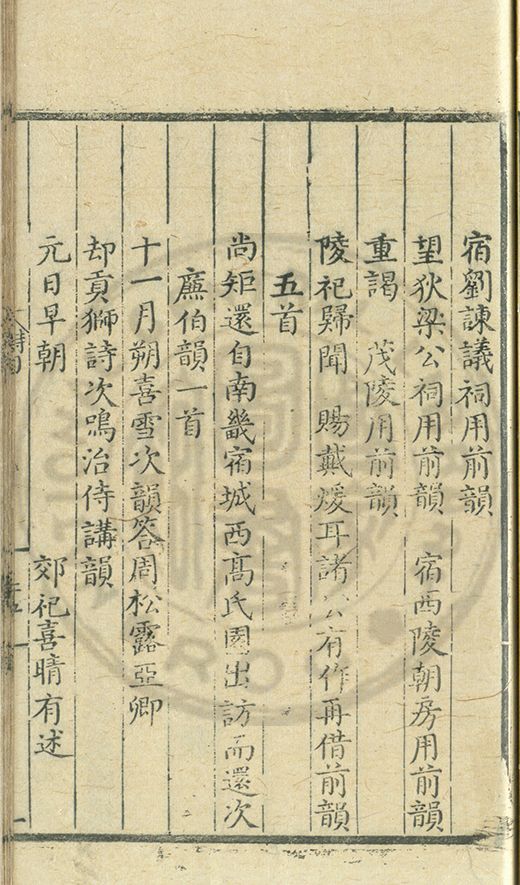 宿劉諫議祠用前韻
望狄梁公祠用前韻　宿西陵朝房用前韻
重謁　茂陵用前韻
陵祀歸聞　賜戴煖耳諸公有作再借前韻
五首
尚矩還自南畿宿城西髙氏園出訪而還次
廌伯韻一首
十一月朔喜雪次韻答周松露亞卿
却貢獅詩次鳴治侍講韻
元日早朝　郊祀喜晴有述